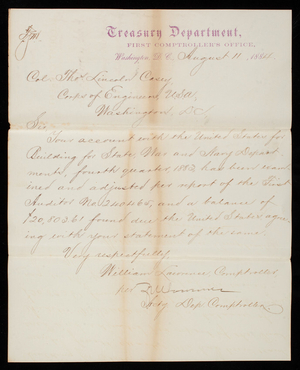 Treasury Department,
FIRST COMPTROLLER'S OFFICE,
Washington, D. C., August 11, 188
Col. Thos. Lincoln Casey
Corps of Engineers U.S.A.
Washington, D.C.
Sir:
Your account with the United States for
Building for State, War and Navy Depart-
ments, fourth quarter 188 has been exam-
ined and adjusted per report of the First
Auditor No. and a balance of
found due the United States agree-
ing with your statement of the same.
Very respectfully
William Lawrence Comptroller
per
Actg Dep Comptroller